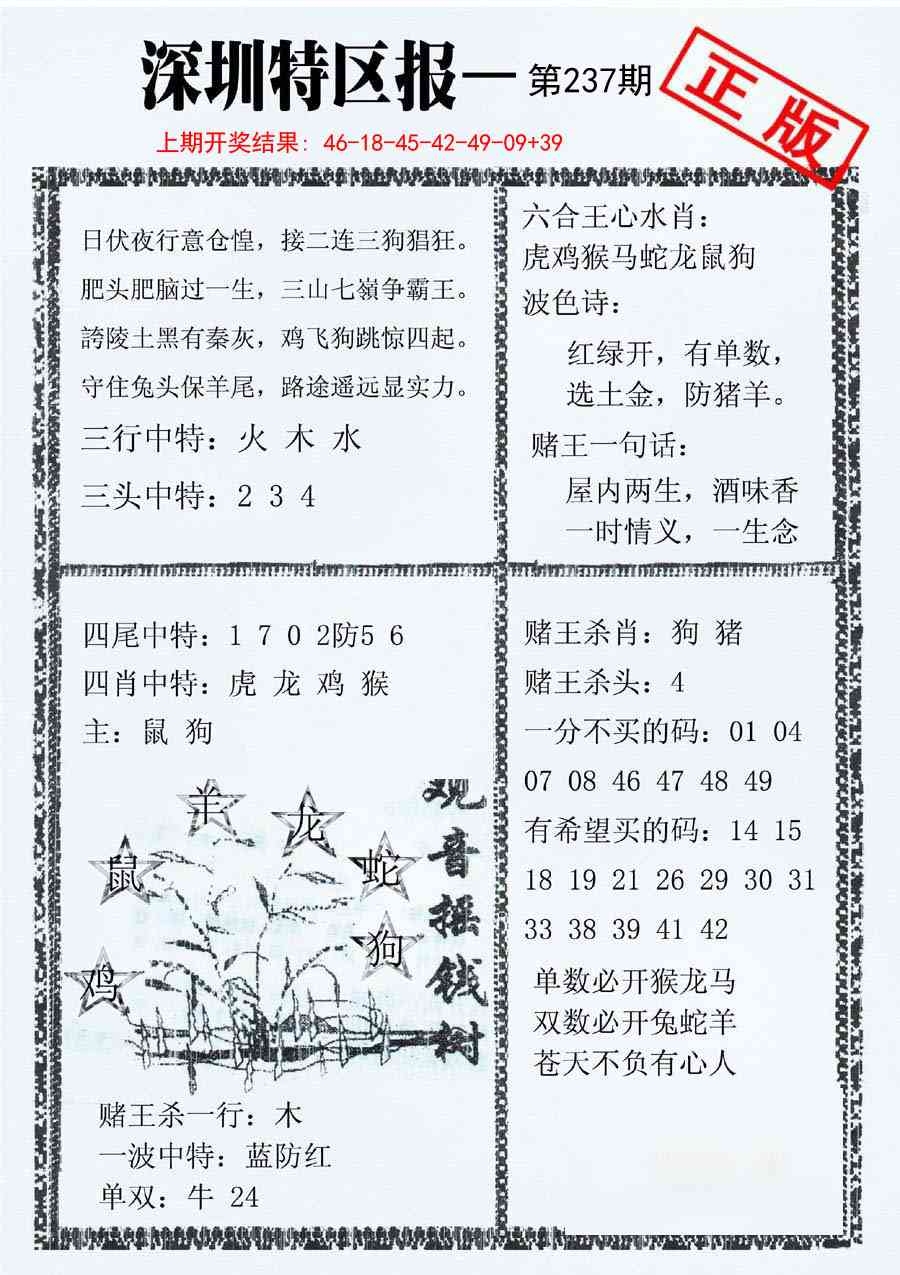 深圳特区报—第237期
正版
上期开奖结果: 46-18-45-42-49-09+39
日伏夜行意仓惶，接二连三狗猖狂。
肥头肥脑过一生，三山七嶺争霸王。
誇陵土黑有秦灰，鸡飞狗跳惊四起。
守住兔头保羊尾，路途遥远显实力。
三行中特：火 木 水
三头中特：2 3 4
六合王心水肖：
虎鸡猴马蛇龙鼠狗
波色诗：
红绿开，有单数，
选土金，防猪羊。
赌王一句话：
屋内两生，酒味香
一时情义，一生念
四尾中特：1 7 0 2防5 6
四肖中特：虎 龙 鸡 猴
主：鼠 狗
羊
龙
鼠
蛇
狗
鸡
观音摇钱树
赌王杀一行：木
一波中特：蓝防红
单双：牛 24
赌王杀肖：狗 猪
赌王杀头：4
一分不买的码：01 04
07 08 46 47 48 49
有希望买的码：14 15
18 19 21 26 29 30 31
33 38 39 41 42
单数必开猴龙马
双数必开兔蛇羊
苍天不负有心人